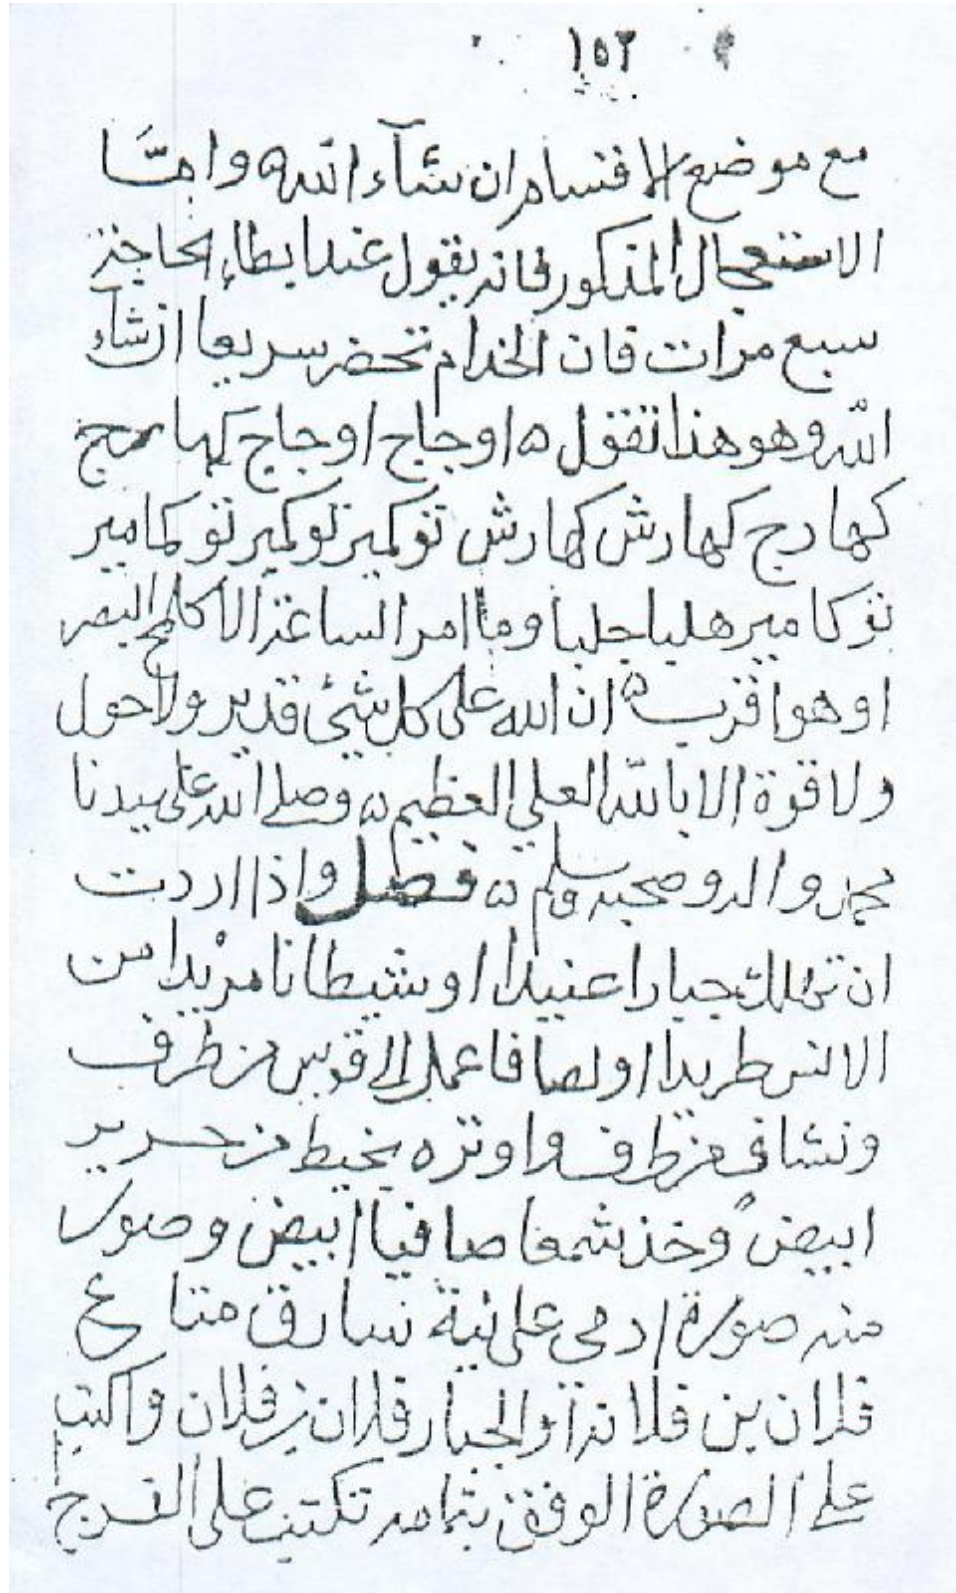 ١٥٢
مع موضع الاقسام ان شآء الله وامَّا
الاستعجال المذكور فانه يقول عند ابطاء الحاجة
سبع مرات فان الخدام تحضر سريعا انشاء
الله وهو هذا تقول ه اوجاج اوجاج كهارج
كهارج كهارش كهارش توكمير توكمير توكامير
توكامير هليا جليا وما امر الساعة الا كلمح البصر
او هو اقرب ه ان الله على كل شئ قدير ولا حول
ولا قوة الا بالله العلي العظيم ه وصلى الله على سيدنا
محمد واله وصحبه وسلم ه فصل واذا اردت
ان تهلك جبارا عنيدا او شيطانا مريدا من
الانس طريدا او لصا فاعمل الى قوس من طرف
ونشاب من طرف واوتره بخيط من حرير
ابيض وخذ شمعا صافيا ابيض وصور
منه صورة ادمى على نية سارق متاع
فلان بن فلانة او الجبار فلان بن فلان واكتب
على الصورة الوفق بتمامه تكتب على الفرج